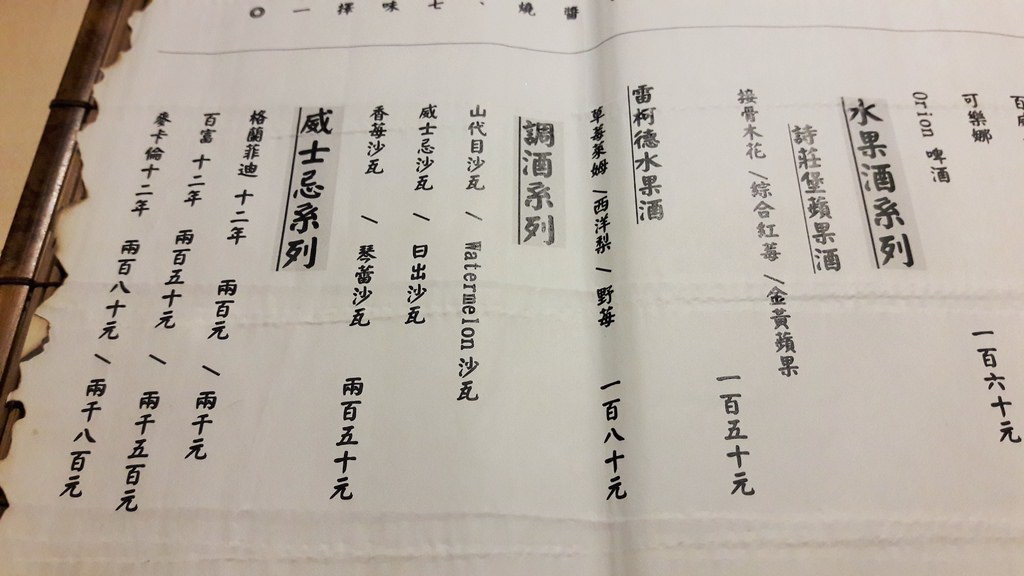 可樂娜
Orion 啤酒
一百六十元
水果酒系列
詩莊堡蘋果酒
接骨木花/綜合紅莓/金黃蘋果
一百五十元
雷柯德水果酒
草莓萊姆/西洋梨/野莓
一百八十元
調酒系列
山代目沙瓦 / Watermelon沙瓦
威士忌沙瓦 / 日出沙瓦
香莓沙瓦 / 琴蕾沙瓦
兩百五十元
威士忌系列
格蘭菲迪 十二年 兩百元 / 兩千元
百富 十二年 兩百五十元 / 兩千五百元
麥卡倫十二年 兩百八十元 / 兩千八百元
醬燒、七味擇一◎